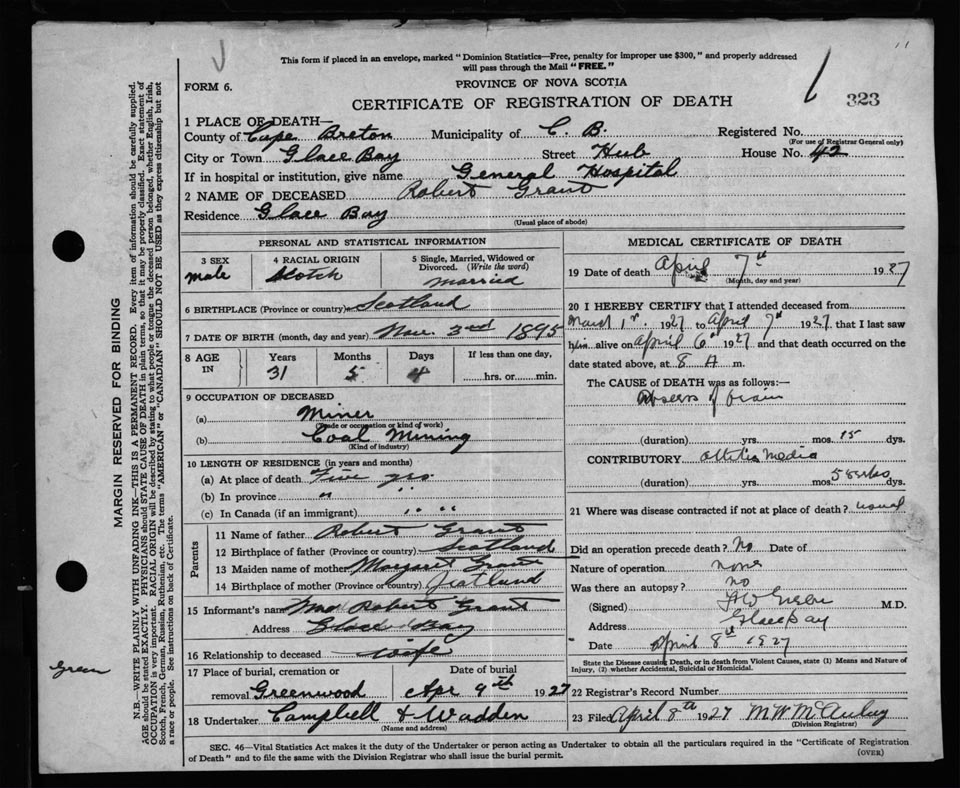 This form if placed in an envelope, marked "Dominion Statistics—Free, penalty for improper use $300," and properly addressed
will pass through the Mail "FREE."
FORM 6.
PROVINCE OF NOVA SCOTIA
CERTIFICATE OF REGISTRATION OF DEATH
323
1 PLACE OF DEATH—
County of Cape Breton Municipality of C. B. Registered No.
(For use of Registrar General only)
City or Town Glace Bay Street Hub House No. 42
If in hospital or institution, give name General Hospital
2 NAME OF DECEASED Robert Grant
Residence Glace Bay
(Usual place of abode)
PERSONAL AND STATISTICAL INFORMATION
3 SEX 4 RACIAL ORIGIN 5 Single, Married, Widowed or Divorced. (Write the word)
male Scotch married
6 BIRTHPLACE (Province or country) Scotland
7 DATE OF BIRTH (month, day and year) Nov. 3rd 1895
8 AGE IN Years Months Days If less than one day,
31 5 4 hrs. or min.
9 OCCUPATION OF DECEASED
(a) Miner
(Trade or occupation or kind of work)
(b) Coal Mining
(Kind of industry)
10 LENGTH OF RESIDENCE (in years and months)
(a) At place of death Five yrs
(b) In province " "
(c) In Canada (if an immigrant) " "
Parents
11 Name of father Robert Grant
12 Birthplace of father (Province or country) Scotland
13 Maiden name of mother Margaret Grant
14 Birthplace of mother (Province or country) Scotland
15 Informant's name Mrs Robert Grant
Address Glace Bay
16 Relationship to deceased wife
17 Place of burial, cremation or Date of burial
removal Greenwood Apr 9th 1927
18 Undertaker Campbell & Wadden
(Name and address)
MEDICAL CERTIFICATE OF DEATH
19 Date of death April 7th 1927
(Month, day and year)
20 I HEREBY CERTIFY that I attended deceased from
March 1st. 1927 to April 7th 1927. that I last saw
him alive on April 6th 1927 and that death occurred on the
date stated above, at 8 A m.
The CAUSE OF DEATH was as follows:—
Abscess of brain
(duration) yrs. mos. 15 dys.
CONTRIBUTORY otitis media
(duration) yrs. mos. 5 weeks dys.
21 Where was disease contracted if not at place of death? usual
Did an operation precede death? No Date of
Nature of operation none
Was there an autopsy? no
(Signed) M.D.
Address Glace Bay
Date April 8th 1927
State the Disease causing Death, or in death from Violent Causes, state (1) Means and Nature of
Injury, (2) whether Accidental, Suicidal or Homicidal.
22 Registrar's Record Number
23 Filed April 8th 1927 M W McAulay
(Division Registrar)
SEC. 46—Vital Statistics Act makes it the duty of the Undertaker or person acting as Undertaker to obtain all the particulars required in the "Certificate of Registration
of Death" and to file the same with the Division Registrar who shall issue the burial permit. (OVER)
MARGIN RESERVED FOR BINDING
N.B.—WRITE PLAINLY WITH UNFADING INK—THIS IS A PERMANENT RECORD. Every item of information should be carefully supplied.
AGE should be stated EXACTLY. PHYSICIANS should STATE CAUSE OF DEATH in plain terms, so that it may be properly classified. Exact statement of
OCCUPATION is very important. RACIAL ORIGIN will be described by stating to what people or tongue the deceased person belonged, whether English, Irish,
Scotch, French, German, Russian, Ruthenian, etc. The terms "AMERICAN" or "CANADIAN" SHOULD NOT BE USED as they express citizenship but not
a race or people. See instructions on back of Certificate.
Green